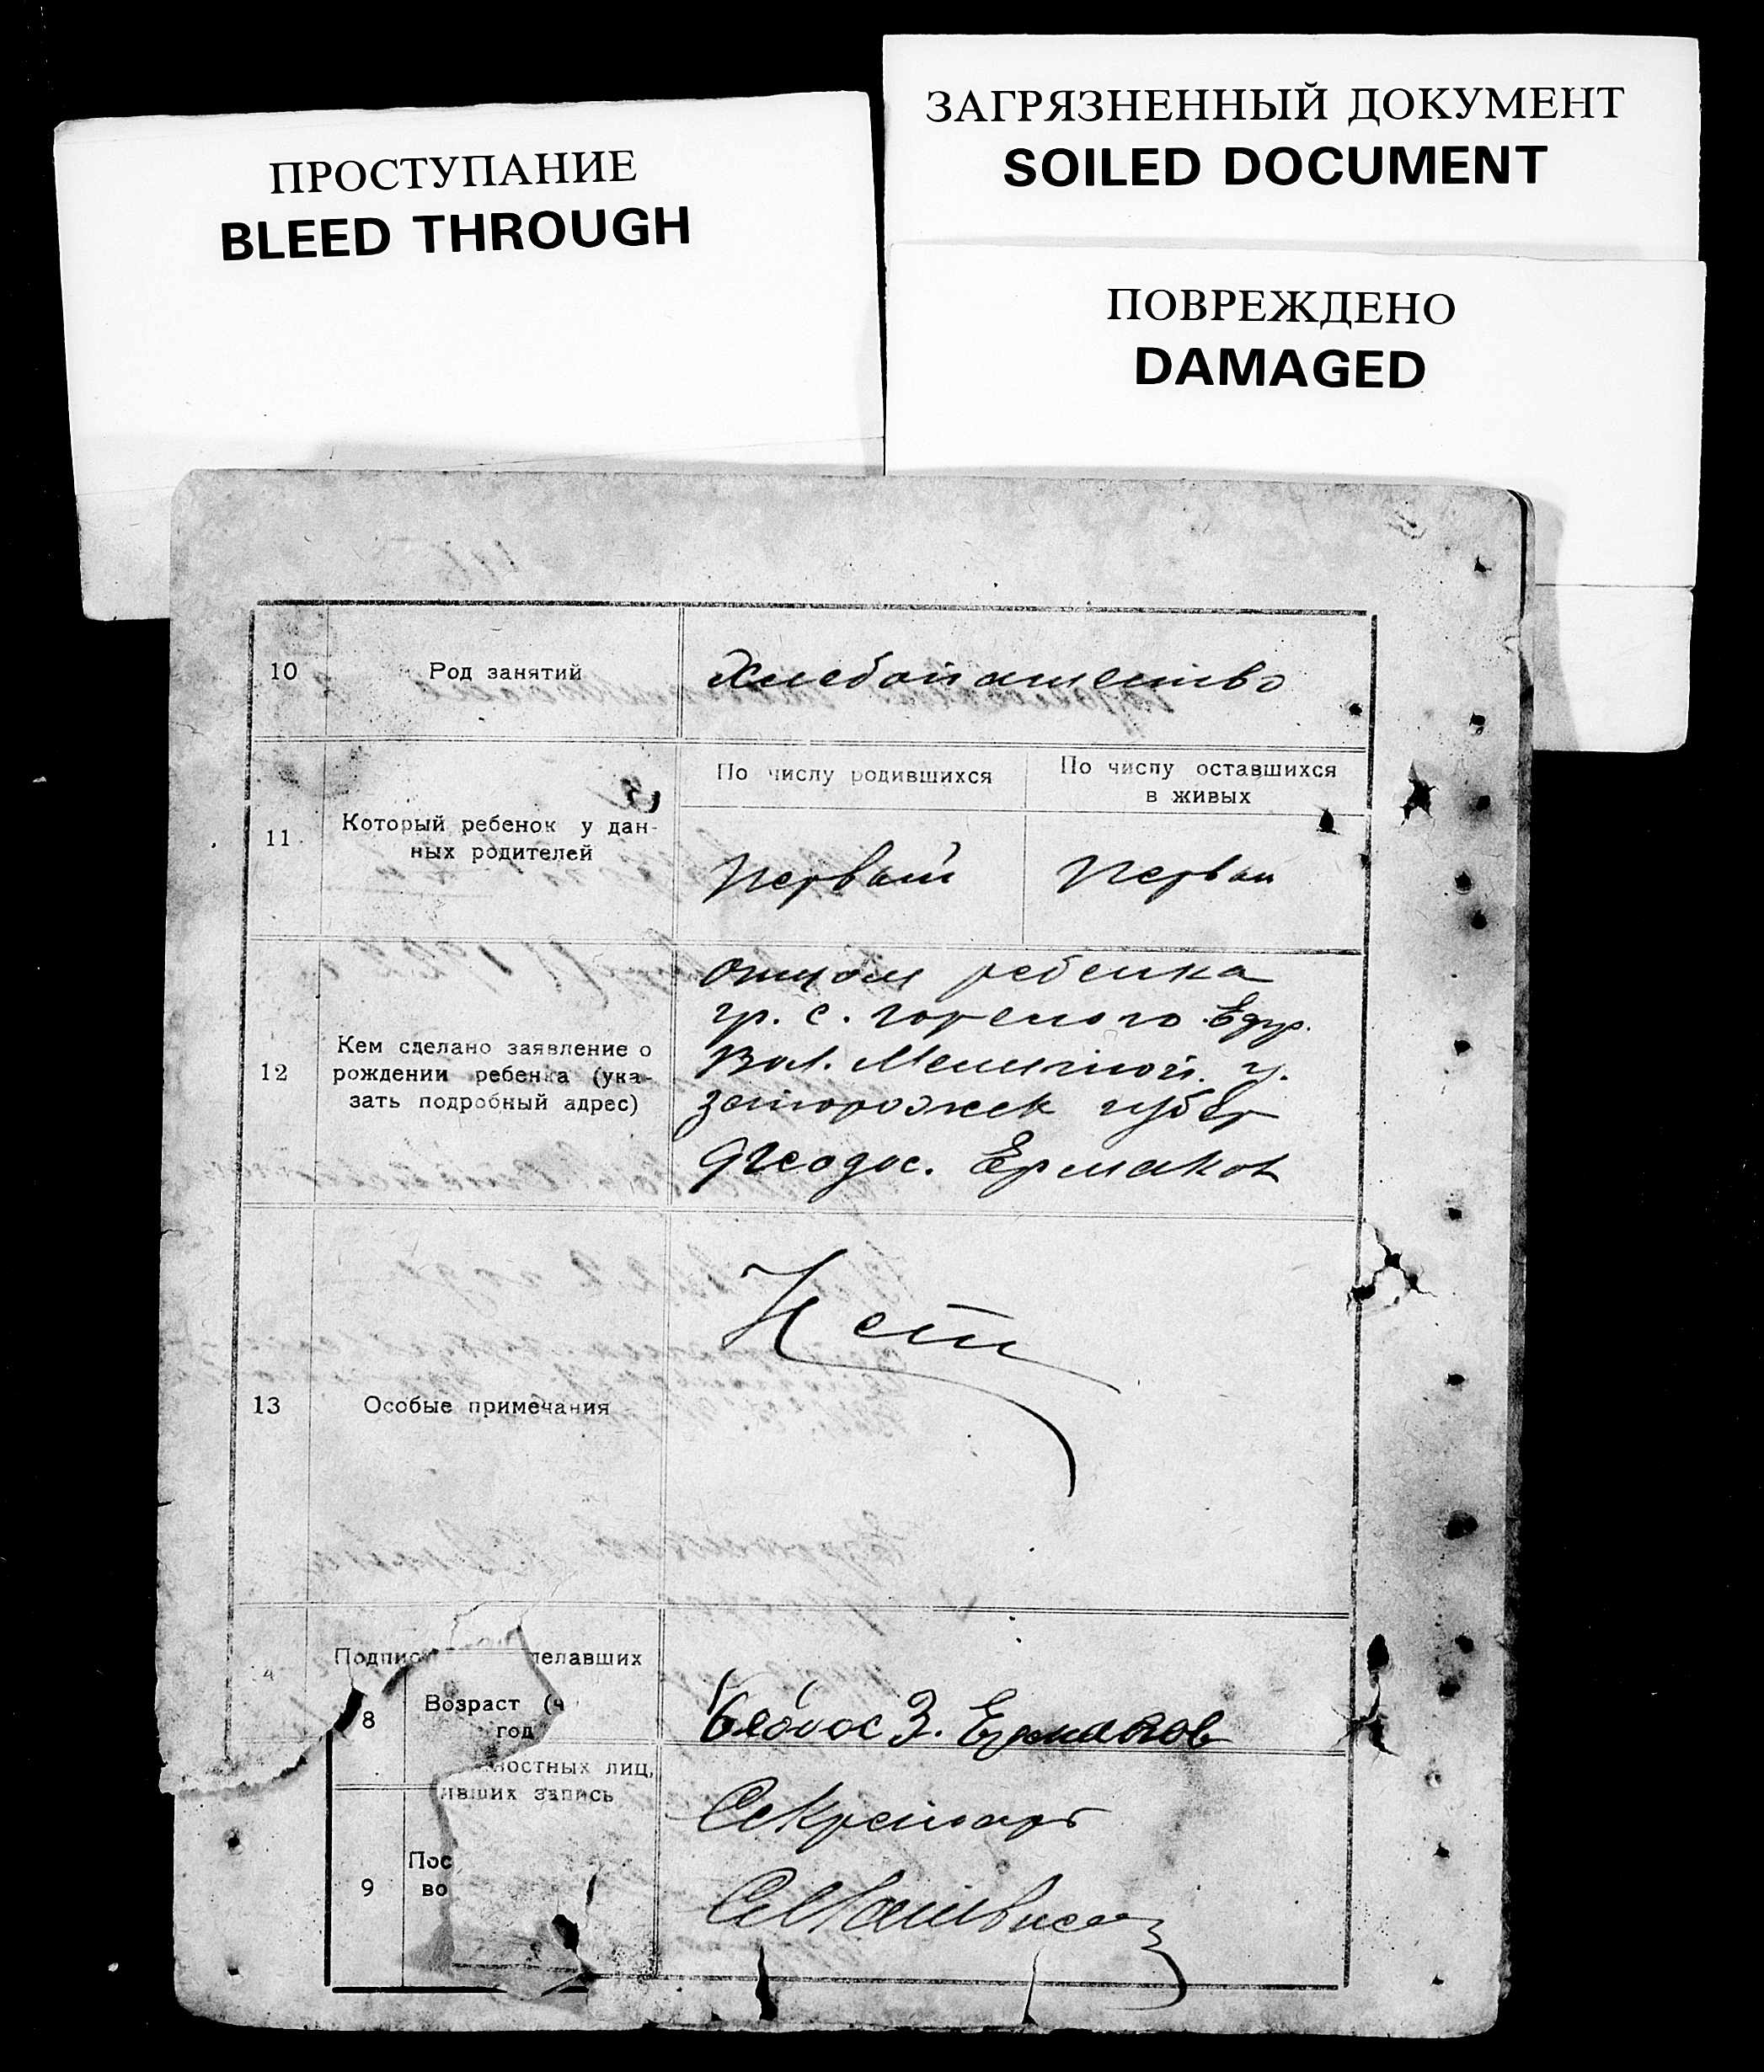 ПРОСТУПАНИЕ
BLEED THROUGH
ЗАГРЯЗНЕННЫЙ ДОКУМЕНТ
SOILED DOCUMENT
ПОВРЕЖДЕНО
DAMAGED
10
Род занятий
Хлебопашество
11
Который ребенок у дан-
ных родителей
По числу родившихся
По числу оставшихся
в живых
Первый
Первый
12
Кем сделано заявление о
рождении ребенка (ука-
зать подробный адрес)
Отцом ребенка
гр. с. Горелого
Вол. у.
Запорожск губер
Феодос. Ермаков
13
Особые примечания
Нет
4
Подпис делавших
8
Возраст (ч
год
Феодос З. Ермаков
ностных лиц,
ивших запись
Секретарь
9
Пос
во